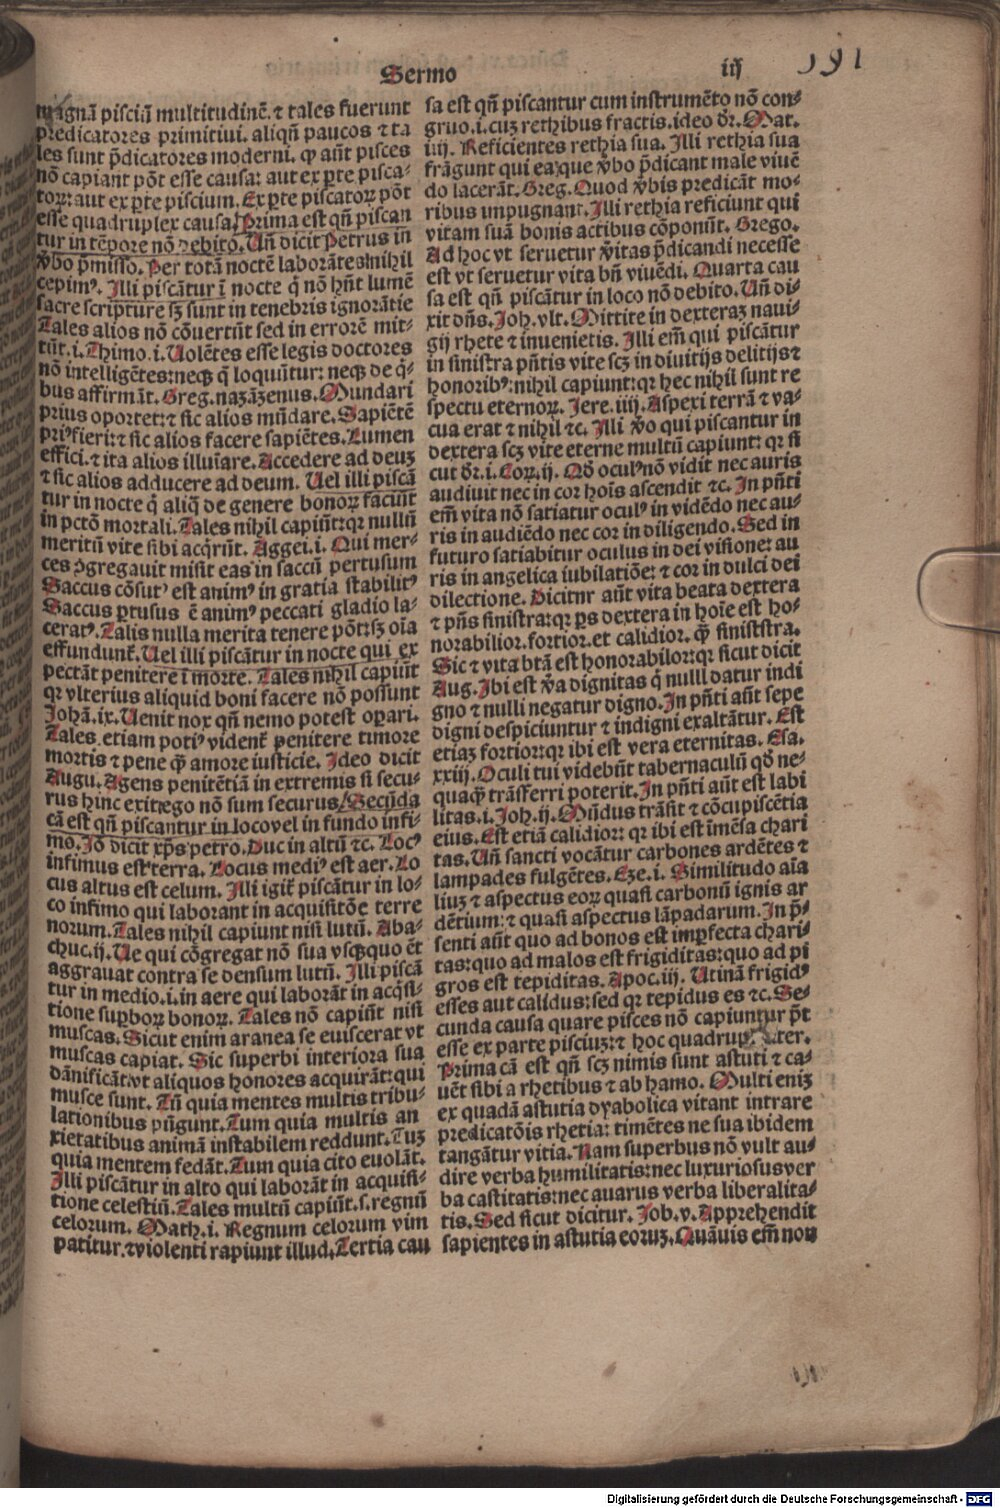 Sermo iij 191
magnā pisciū multitudinē. ⁊ tales fuerunt
predicatores primitiui. aliqñ paucos ⁊ ta
les sunt p̄dicatores moderni. ꝙ aūt pisces
nō capiant pōt esse causa: aut ex ꝑte pisca-
toꝝ: aut ex ꝑte piscium. Ex ꝑte piscatoꝝ pōt
esse quadruplex causa. Prima est qñ piscan
tur in tēpore nō debito. Uñ dicit Petrus in
v̄bo p̄misso. Per totā noctē laborātes nihil
cepimꝰ. Illi piscātur ī nocte q̇ nō hn̄t lumē
sacre scripture sꝫ sunt in tenebris ignorātie
Tales alios nō cōuertūt sed in errorē mit-
tūt. i. Thimo. i. Uolētes esse legis doctores
nō intelligētes: neqꝫ q̄ loquūtur: neqꝫ de q̇-
bus affirmāt. Greg. nazāzenus. Mundari
prius oportet: ⁊ sic alios mūdare. Sapiētē
priꝰ fieri: ⁊ sic alios facere sapiētes. Lumen
effici. ⁊ ita alios illuīare. Accedere ad deuꝫ
⁊ sic alios adducere ad deum. Uel illi piscā
tur in nocte q̇ aliq̇d de genere bonoꝝ faciūt
in pctō mortali. Tales nihil capiūt: qꝛ nullū
meritū vite sibi acq̇rūt. Aggei. i. Qui mer-
ces ↄgregauit misit eas in saccū pertusum
Saccus cōsutꝰ est animꝰ in gratia stabilitꝰ
Saccus ꝑtusus ē animꝰ peccati gladio la-
ceratꝰ. Talis nulla merita tenere pōt: sꝫ oīa
effundunt᷑. Uel illi piscātur in nocte qui ex
pectāt penitere ī morte. Tales nihil capiūt
qꝛ vlterius aliquid boni facere nō possunt
Johā. ix. Uenit nox qñ nemo potest oꝑari.
Tales etiam potiꝰ vident᷑ penitere timore
mortis ⁊ pene q̄ꝫ amore iusticie. Ideo dicit
Augu. Agens penitētiā in extremis si secu-
rus hinc exit: ego nō sum securus. Secūda
cā est qñ piscantur in loco vel in fundo infi-
mo. Jō dicit xp̄s petro. Duc in altū ⁊c. Locꝰ
infimus est terra. Locus mediꝰ est aer. Lo
cus altus est celum. Illi igit᷑ piscātur in lo-
co infimo qui laborant in acquisitōe terre
norum. Tales nihil capiunt nisi lutū. Aba-
chuc. ij. Ue qui cōgregat nō sua vsq̄quo et
aggrauat contra se densum lutū. Illi piscā
tur in medio. i. in aere qui laborāt in acq̇si-
tione suꝑboꝝ bonoꝝ. Tales nō capiūt nisi
muscas. Sicut enim aranea se euiscerat vt
muscas capiat. Sic superbi interiora sua
dānificāt: vt aliquos honores acquirāt: qui
musce sunt. Tū quia mentes multis tribu-
lationibus pūgunt. Tum quia multis an
xietatibus animā instabilem reddunt. Tuꝫ
quia mentem fedāt. Tum quia cito euolāt.
Illi piscātur in alto qui laborāt in acquisi-
tione celestiū. Tales multū capiūt. s. regnū
celorum. Math. i. Regnum celorum vim
patitur. ⁊ violenti rapiunt illud. Tertia cau
sa est qñ piscantur cum instrumēto nō con-
gruo. i. cuꝫ rethibus fractis. ideo dr̄. Mat.
iiij. Reficientes rethia sua. Illi rethia sua
frāgunt qui ea: que v̄bo p̄dicant male viuē
do lacerāt. Greg. Quod v̄bis predicāt mo-
ribus impugnant. Illi rethia reficiunt qui
vitam suā bonis actibus cōponūt. Grego.
Ad hoc vt seruetur v̄itas p̄dicandi necesse
est vt seruetur vita bn̄ viuēdi. Quarta cau
sa est qñ piscātur in loco nō debito. Uñ di-
xit dn̄s. Joh. vlt. Mittite in dexteraꝫ naui-
gij rhete ⁊ inuenietis. Illi em̄ qui piscātur
in sinistra pn̄tis vite scꝫ in diuitijs delitijs ⁊
honoribꝰ: nihil capiunt: qꝛ hec nihil sunt re
spectu eternoꝝ. Jere. iiij. Aspexi terrā ⁊ va-
cua erat ⁊ nihil ⁊c. Illi v̄o qui piscantur in
dextera scꝫ vite eterne multū capiunt: qꝛ si
cut dr̄. i. Coꝝ. ij. Qd̄ oculꝰ nō vidit nec auris
audiuit nec in cor hoīs ascendit ⁊c. In pn̄ti
em̄ vita nō satiatur oculꝰ in vidēdo nec au-
ris in audiēdo nec cor in diligendo. Sed in
futuro satiabitur oculus in dei visione: au
ris in angelica iubilatiōe: ⁊ cor in dulci dei
dilectione. Dicitnr aūt vita beata dextera
⁊ pn̄s sinistra: qꝛ ꝑs dextera in hoīe est ho-
norabilior. fortior. et calidior. q̄ꝫ siniststra.
Sic ⁊ vita btā est honorabilor: qꝛ sicut dicit
Aug. Ibi est v̄a dignitas q̄ nulli datur indi
gno ⁊ nulli negatur digno. In pn̄ti aūt sepe
digni despiciuntur ⁊ indigni exaltātur. Est
etiaꝫ fortior: qꝛ ibi est vera eternitas. Esa.
xxiij. Oculi tui videbūt tabernaculū qd̄ ne-
quaq̄ꝫ trāsferri poterit. In pn̄ti aūt est labi
litas. i. Joh. ij. Mūdus trāsit ⁊ cōcupiscētia
eius. Est etiā calidior: qꝛ ibi est īmēsa chari
tas. Uñ sancti vocātur carbones ardētes ⁊
lampades fulgētes. Eze. i. Similitudo aīa
liuꝫ ⁊ aspectus eoꝝ quasi carbonū ignis ar
dētium: ⁊ quasi aspectus lāpadarum. In p̄-
senti aūt quo ad bonos est imꝑfecta chari-
tas: quo ad malos est frigiditas: quo ad pi
gros est tepiditas. Apoc. iij. Utinā frigidꝰ
esses aut calidus: sed qꝛ tepidus es ⁊c. Se-
cunda causa quare pisces nō capiuntur pōt
esse ex parte pisciuꝫ: ⁊ hoc
Prima cā est qñ scꝫ nimis sunt astuti ⁊ ca-
uēt sibi a rhetibus ⁊ ab hamo. Multi eniꝫ
ex quadā astutia dyabolica vitant intrare
predicatōis rhetia: timētes ne sua ibidem
tangātur vitia. Nam superbus nō vult au-
dire verba humilitatis: nec luxuriosus ver
ba castitatis: nec auarus verba liberalita-
tis. Sed sicut dicitur. Job. v. Apprehendit
sapientes in astutia eoruꝫ. Quāuis em̄ non
Digitalisierung gefördert durch die Deutsche Forschungsgemeinschaft - DFG